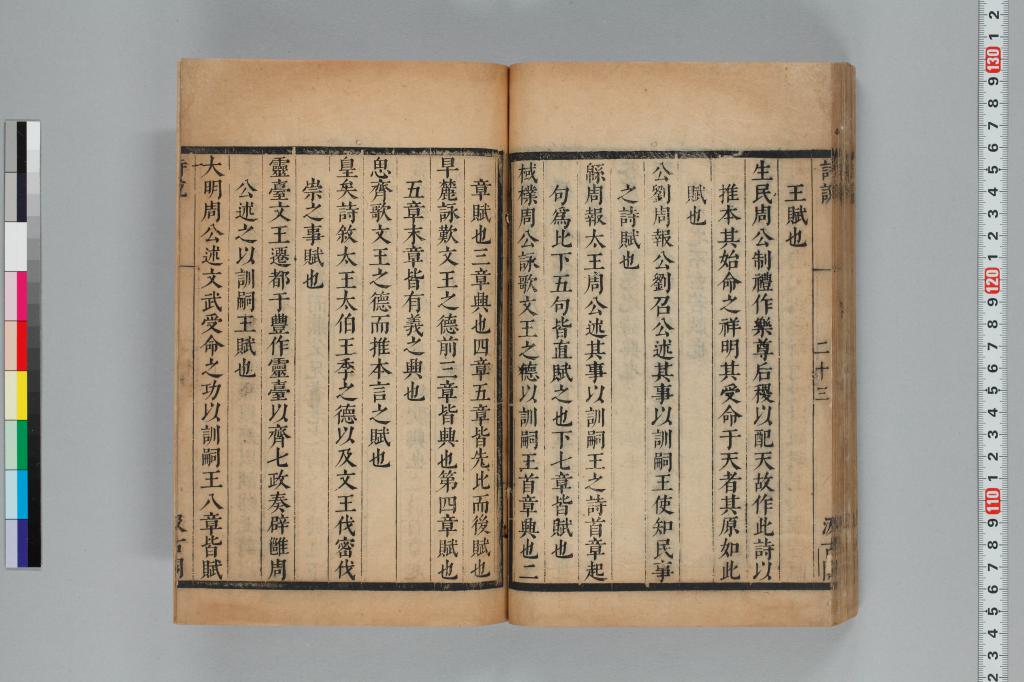 王賦也
生民周公制禮作樂尊后稷以配天故作此詩以
推本其始命之祥明其受命于天者其原如此
賦也
公劉周報公劉召公述其事以訓嗣王使知民事
之詩賦也
緜周報太王周公述其事以訓嗣王之詩首章起
句爲比下五句皆直賦之也下七章皆賦也
棫樸周公詠歌文王之德以訓嗣王首章興也二
章賦也三章興也四章五章皆先比而後賦也
旱麓詠歎文王之德前三章皆興也第四章賦也
五章末章皆有義之興也
思齊歌文王之德而推本言之賦也
皇矣詩敘太王太伯王季之德以及文王伐密伐
崇之事賦也
靈臺文王遷都于豐作靈臺以齊七政奏辟雝周
公述之以訓嗣王賦也
大明周公述文武受命之功以訓嗣王八章皆賦
二十三